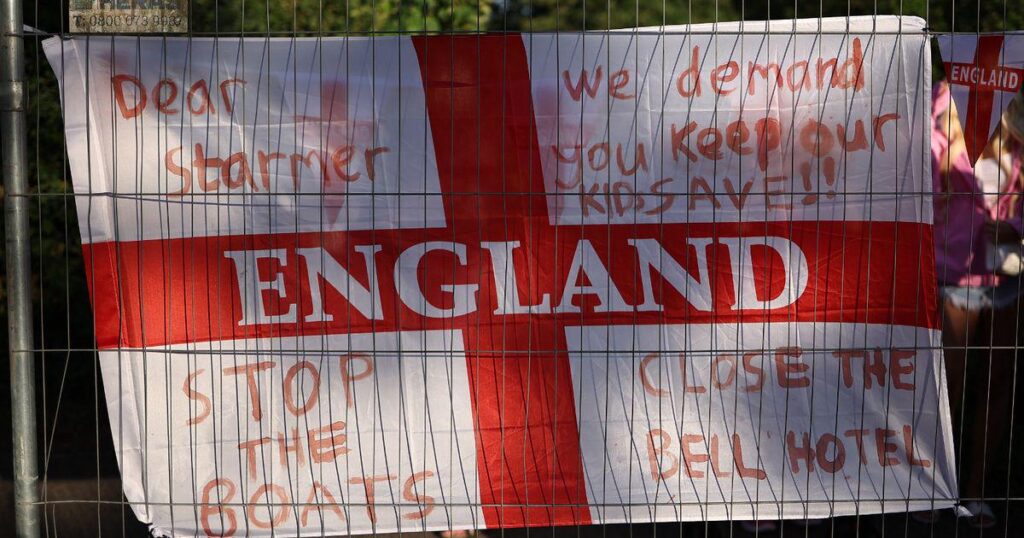 T: 0800 073 9987
Dear
Starmer
We demand
you Keep our
KIDS SAVE!!
ENGLAND
STOP
THE
BOATS
CLOSE THE
BELL HOTEL
ENGLAND